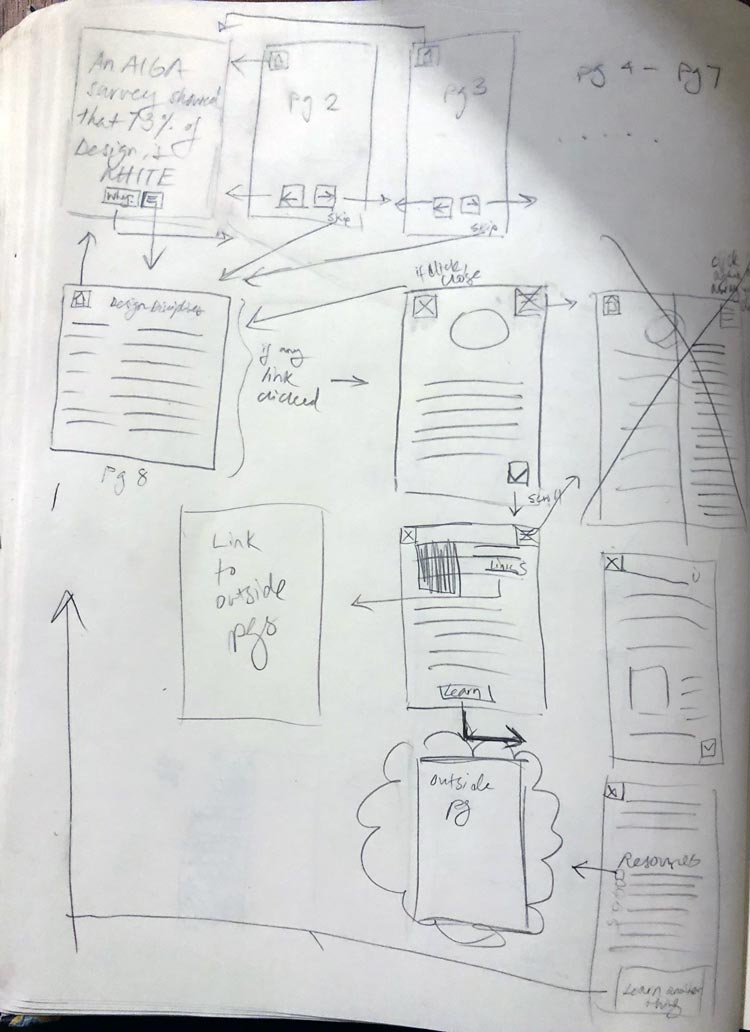 An AIGA
survey showed
that 73% of
Design is
WHITE
Why
pg 2
skip
pg 3
skip
pg 4 - pg 7
.....
Design Disciplines
pg 8
if any
link
clicked
if click,
close
click
scroll
Links
Learn
Link
to
outside
pgs
outside
pg
Resources
Learn another
thing